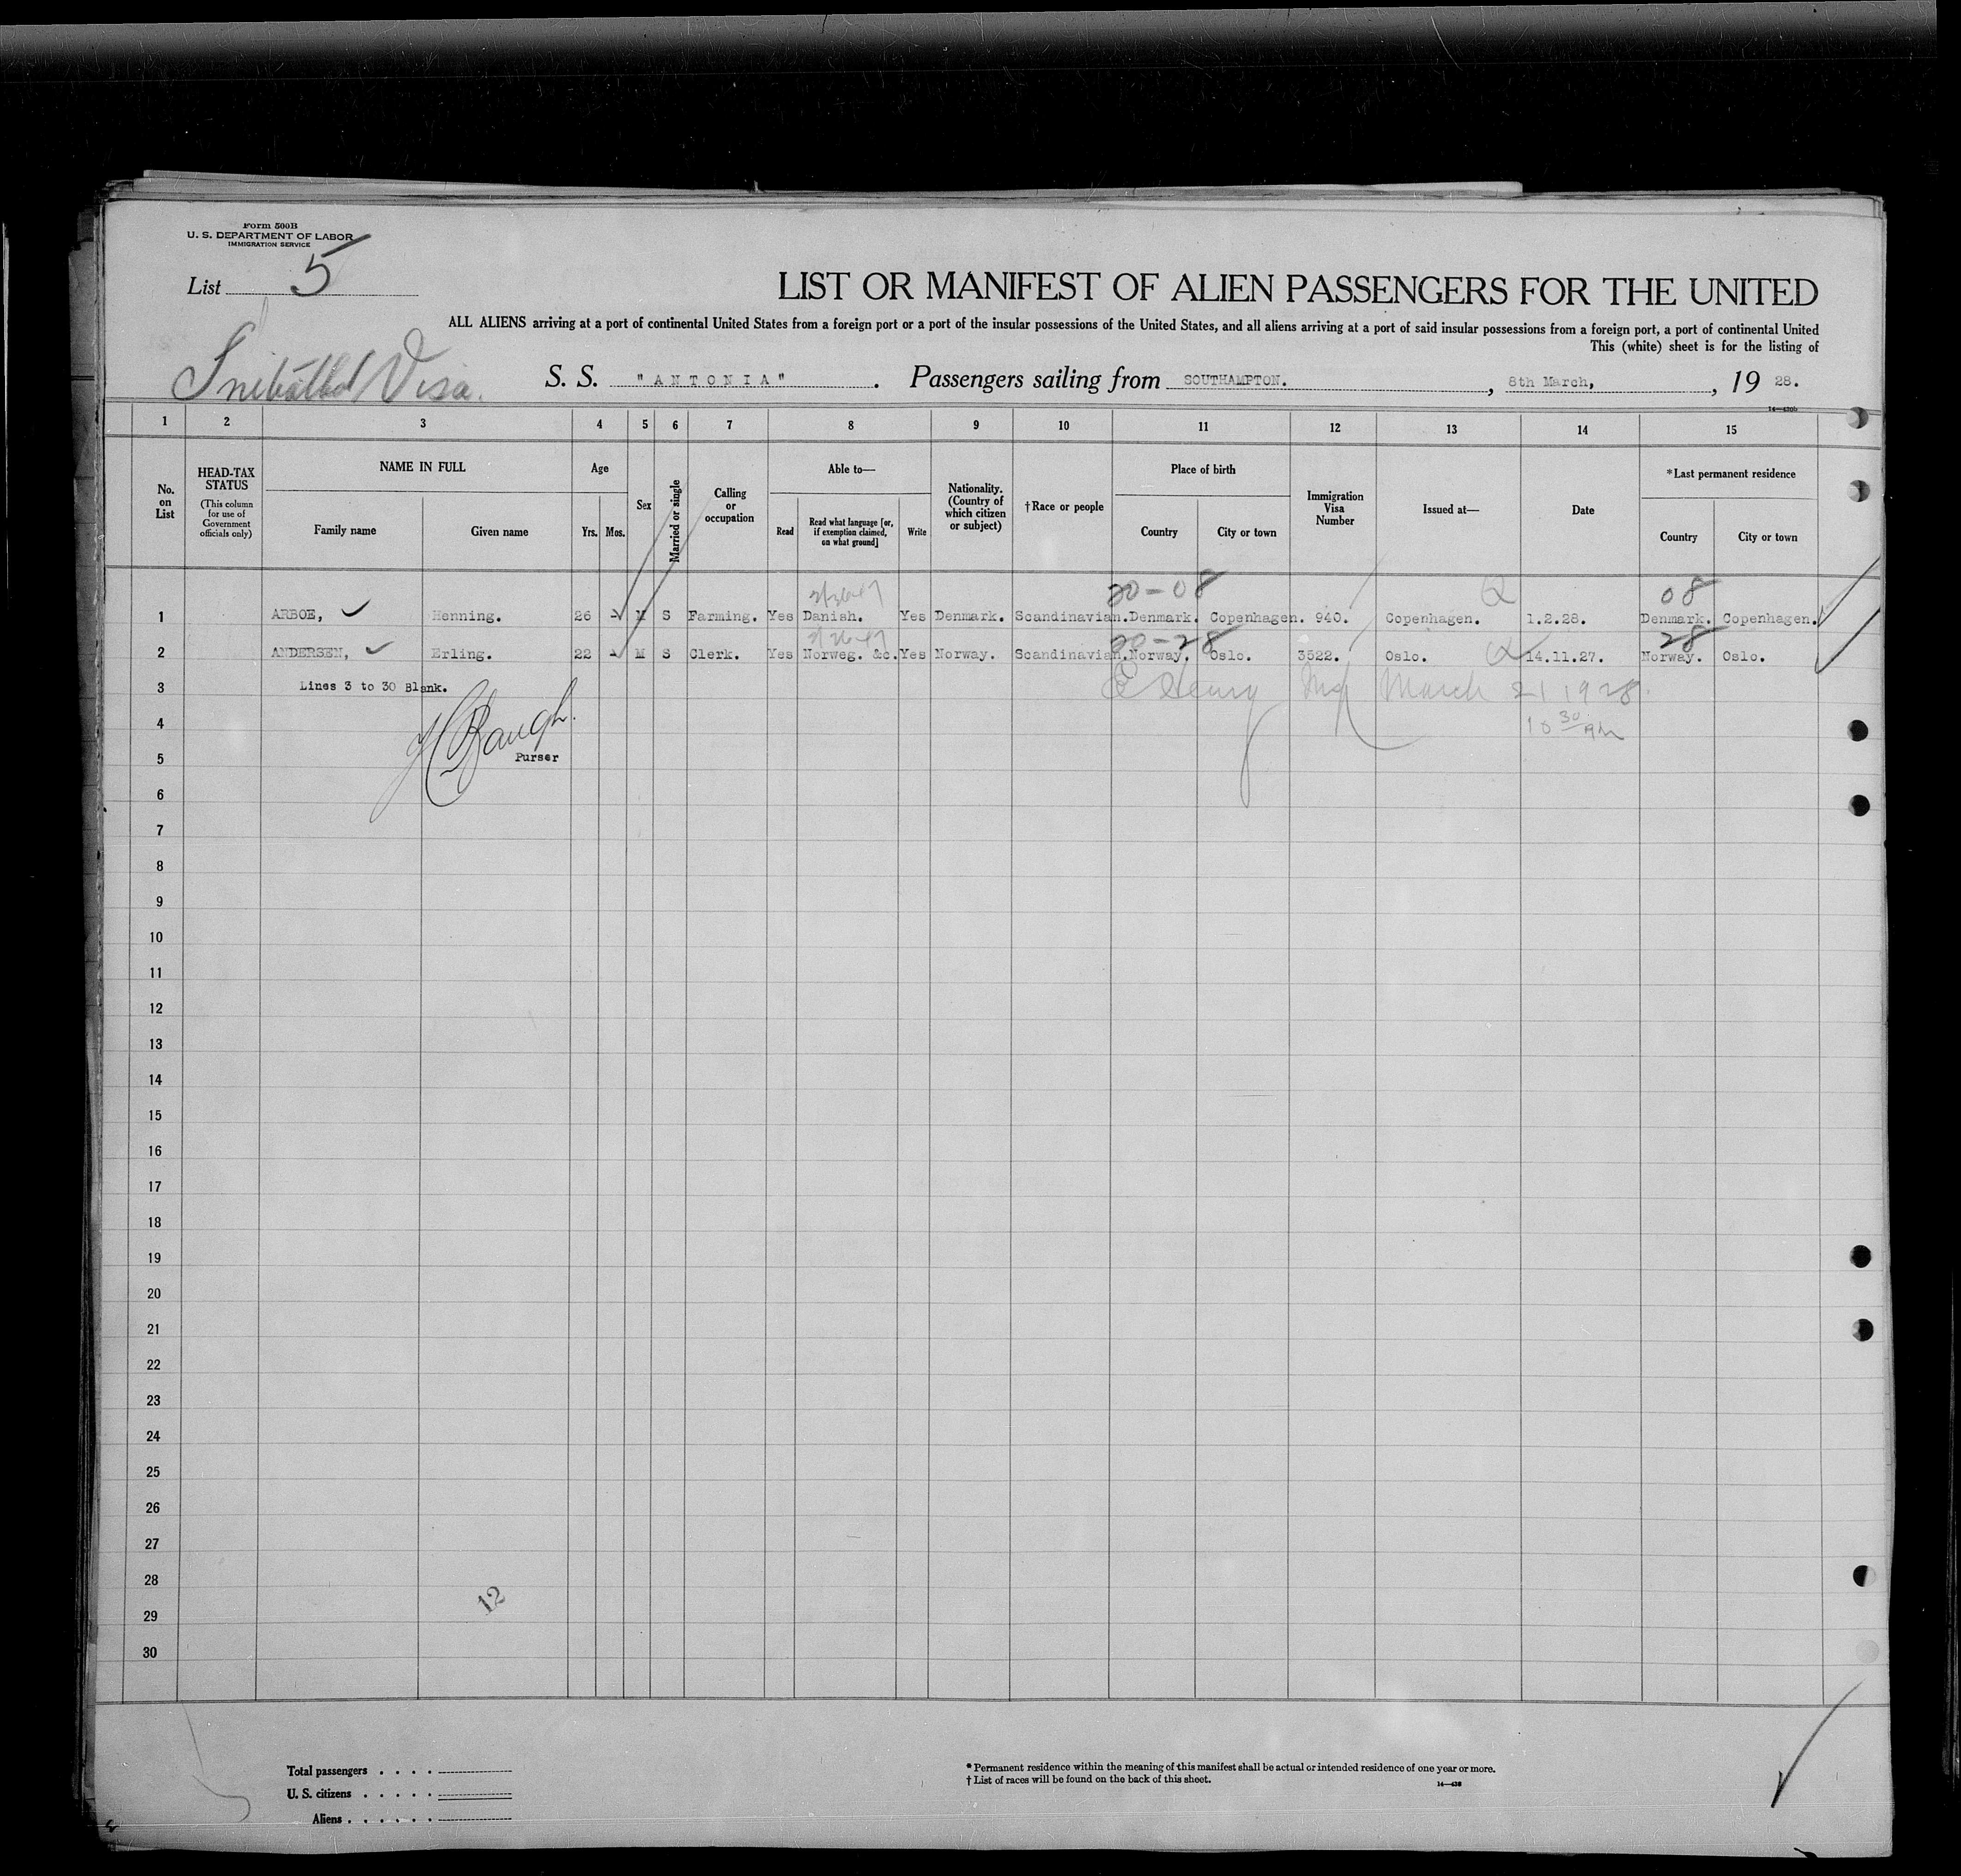 Form 500B
U. S. DEPARTMENT OF LABOR
IMMIGRATION SERVICE
List 5
LIST OR MANIFEST OF ALIEN PASSENGERS FOR THE UNITED
ALL ALIENS arriving at a port of continental United States from a foreign port or a port of the insular possessions of the United States, and all aliens arriving at a port of said insular possessions from a foreign port, a port of continental United
This (white) sheet is for the listing of
Visa.
S. S. "ANTONIA" . Passengers sailing from SOUTHAMPTON. , 8th March, , 19 28.
1 2 3 4 5 6 7 8 9 10 11 12 13 14 15
No. on List
HEAD-TAX STATUS
(This column for use of Government officials only)
NAME IN FULL
Family name Given name
Age
Yrs. Mos.
Sex
Married or single
Calling or occupation
Able to—
Read
Read what language [or, if exemption claimed, on what ground]
Write
Nationality. (Country of which citizen or subject)
†Race or people
Place of birth
Country City or town
Immigration Visa Number
Issued at—
Date
*Last permanent residence
Country City or town
20-08 08
1 ARBOE, Henning. 26 - M S Farming. Yes Danish. Yes Denmark. Scandinavian. Denmark. Copenhagen. 940. Copenhagen. 1.2.28. Denmark. Copenhagen.
20-28 28
2 ANDERSEN, Erling. 22 - M S Clerk. Yes Norweg. &c. Yes Norway. Scandinavian. Norway. Oslo. 3522. Oslo. 14.11.27. Norway. Oslo.
3 Lines 3 to 30 Blank. Henry March 21 1928.
4 10 30 AM
5 Purser
6
7
8
9
10
11
12
13
14
15
16
17
18
19
20
21
22
23
24
25
26
27
28
12
29
30
Total passengers . . . .
U. S. citizens . . . . .
Aliens . . . . . .
* Permanent residence within the meaning of this manifest shall be actual or intended residence of one year or more.
† List of races will be found on the back of this sheet.